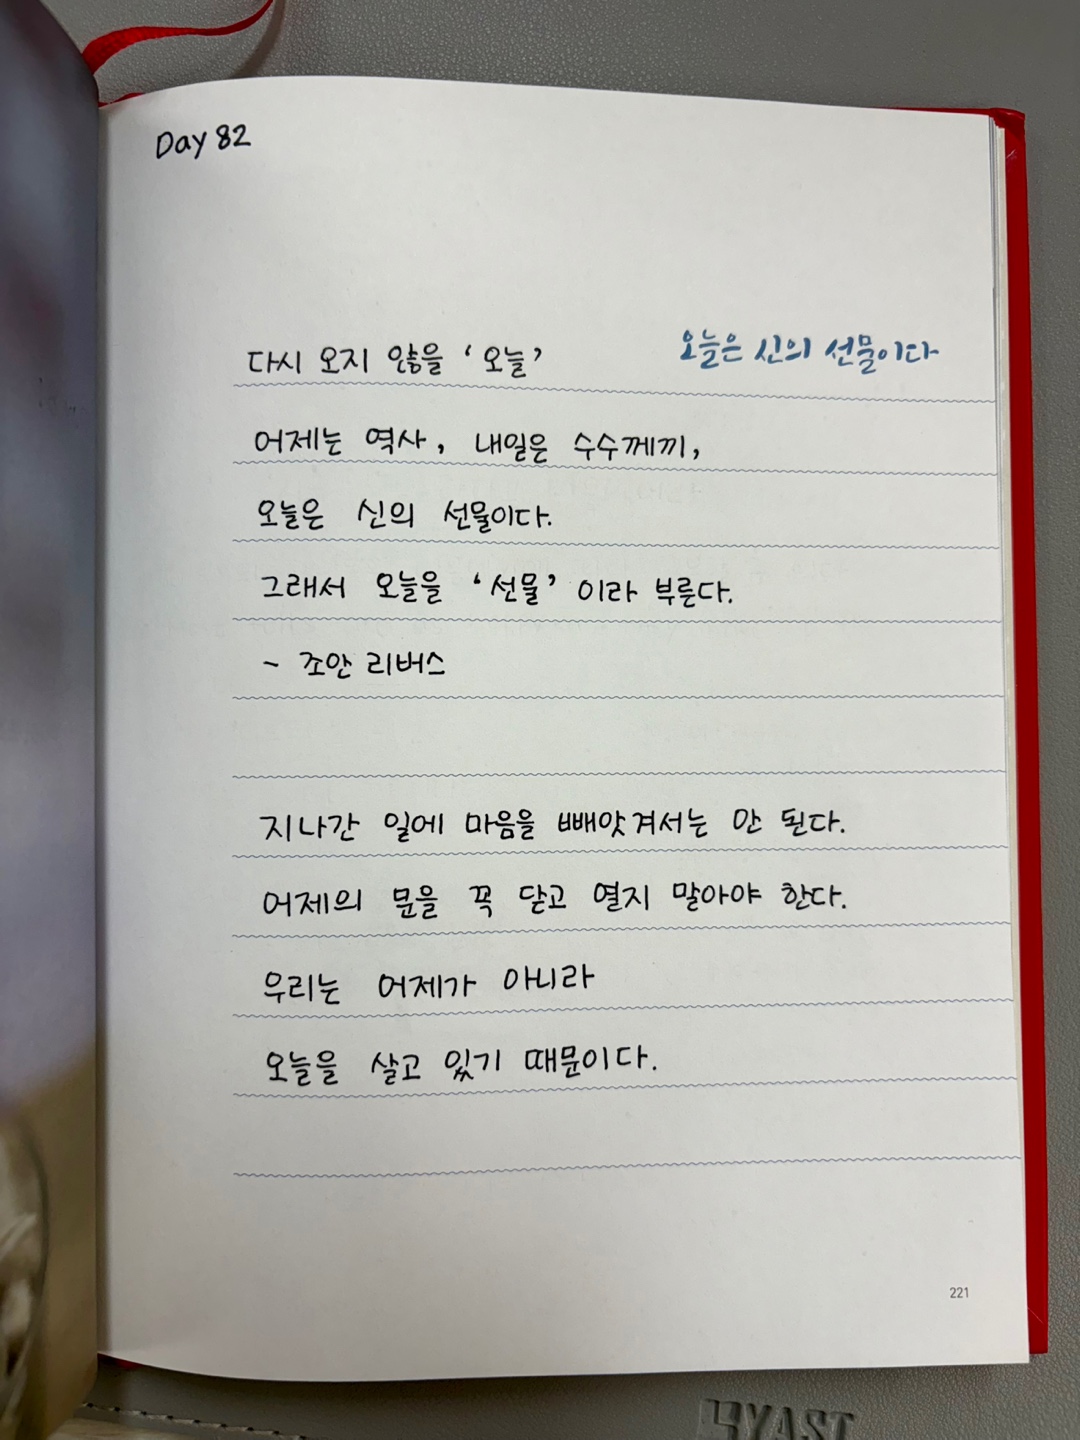 Day 82
다시 오지 않을 ‘오늘’ 오늘은 신의 선물이다
어제는 역사, 내일은 수수께끼,
오늘은 신의 선물이다.
그래서 오늘을 ‘선물’이라 부른다.
- 조안 리버스
지나간 일에 마음을 빼앗겨서는 안 된다.
어제의 문을 꼭 닫고 열지 말아야 한다.
우리는 어제가 아니라
오늘을 살고 있기 때문이다.
221
YAST